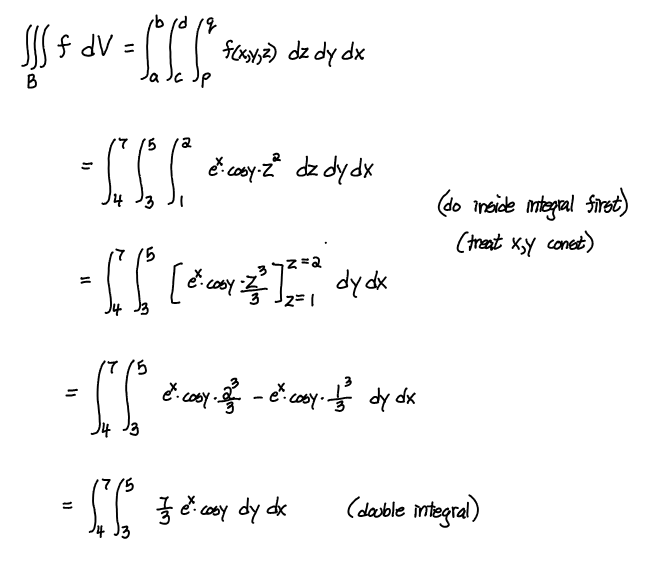 ∭_B f dV = ∫_a^b ∫_c^d ∫_p^q f(x,y,z) dz dy dx
= ∫_4^7 ∫_3^5 ∫_1^2 e^x · cosy · z^2 dz dy dx
(do inside integral first)
(treat x,y const)
= ∫_4^7 ∫_3^5 [e^x · cosy · z^3/3]_{z=1}^{z=2} dy dx
= ∫_4^7 ∫_3^5 e^x · cosy · 2^3/3 - e^x · cosy · 1^3/3 dy dx
= ∫_4^7 ∫_3^5 7/3 e^x · cosy dy dx (double integral)